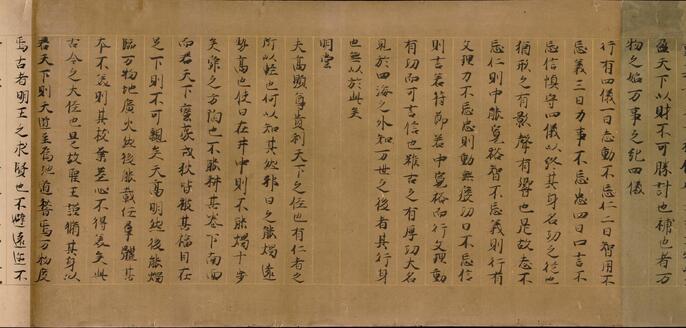 盈天下以財不可勝計也補也者万
物之始万事之紀四儀
行有四儀一曰志動不忘仁二曰智用不
忘義三曰力事不忘忠四曰口言不
忘信慎守四儀以終其身名功之從也
猶形之有影聲有響也是故志不
忘仁則中能寬裕智不忘義則行有
文理力不忘忠則動無廢功口不忘信
則言若符節若中寬裕而行文理動
有功而可言信也雖古之有厚功大名
見於四海之外知万世之後者其行身
也無以於此矣
明堂
夫高顯尊貴利天下之徑也有仁者之
所以輕也何以知其然耶日之能燭遠
勢高也使日在井中則不能燭十步
矣舜之方陶也不能耕其巷下南面
而君天下蠻夷戎狄皆被其福目在
足下則不可視矣天高明然後能燭
臨万物地廣大然後能載任羣體其
本不美則其枝葉莖心不得美矣此
古今之大徑也是故聖王謹脩其身以
君天下則天道至焉地道稽焉万物度
焉古者明王之求賢也不避遠近不